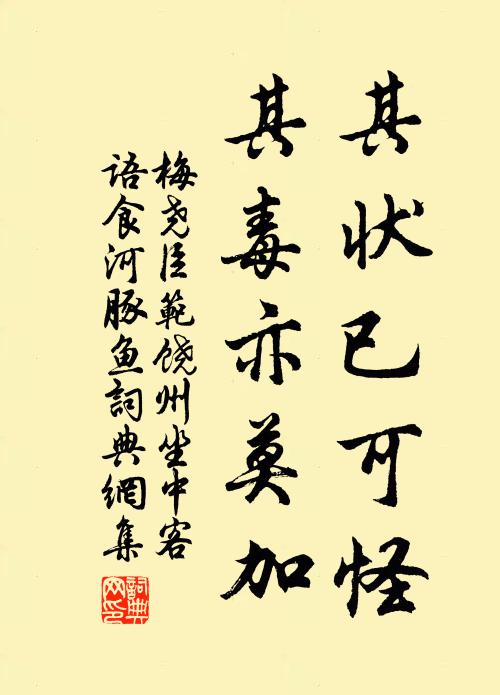 其状已可怪
其毒亦莫加
梅尧臣範饶州坐中客
语食河豚鱼詞典網集